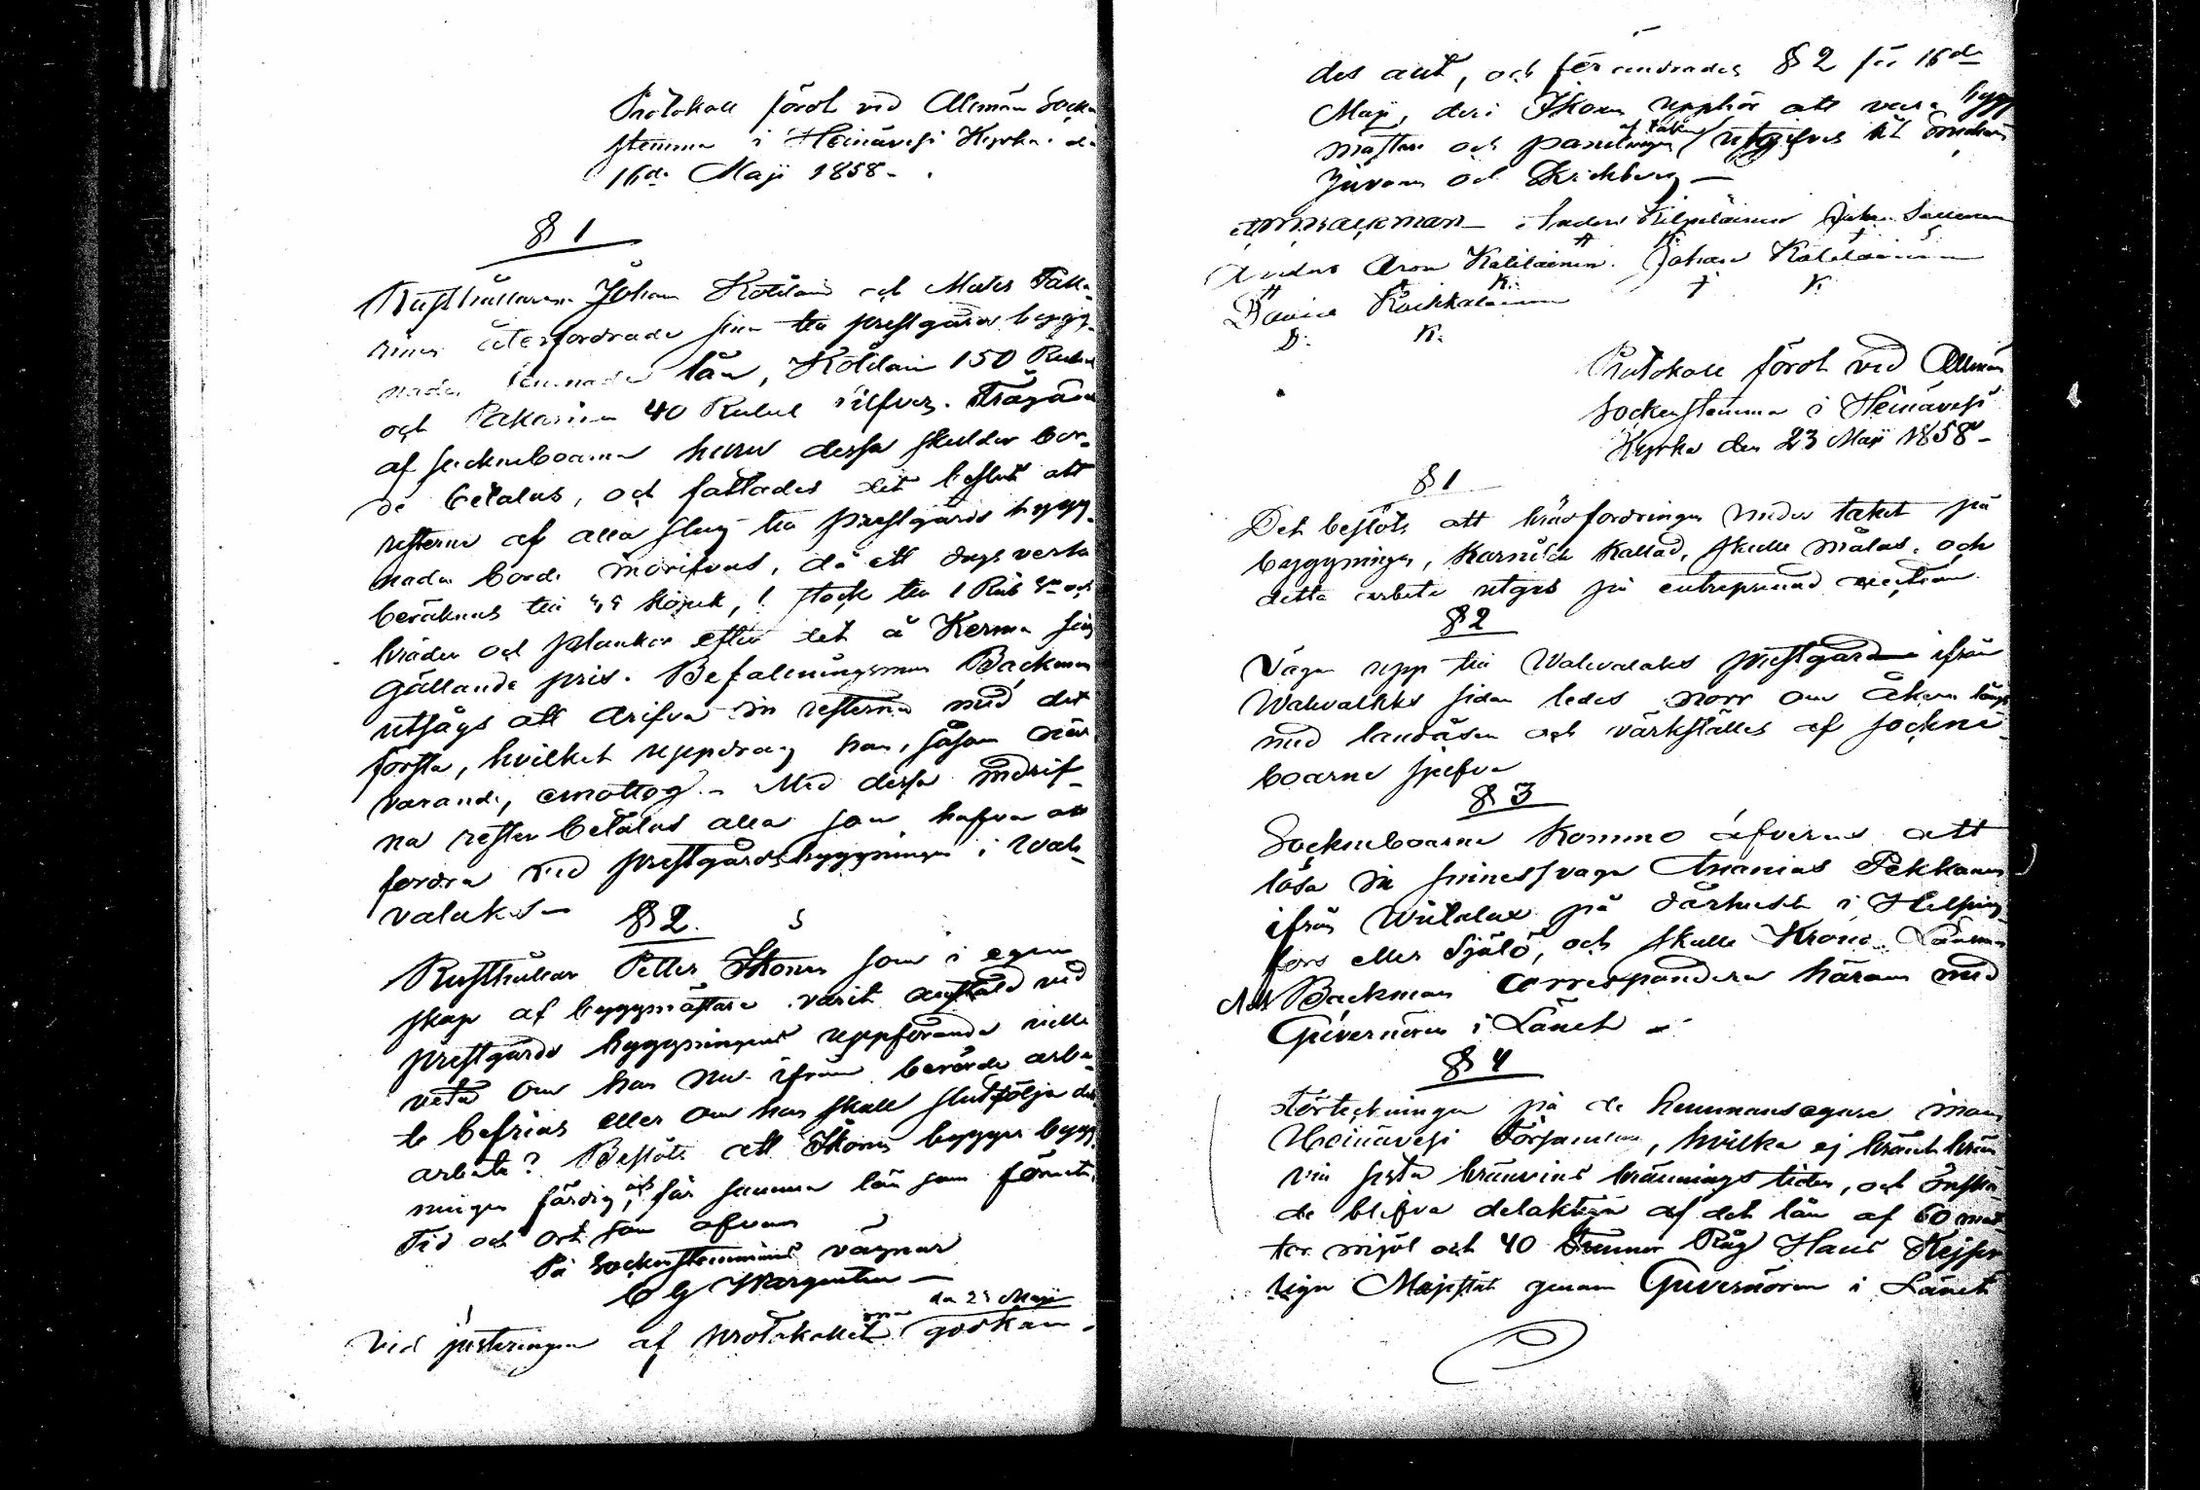 Protokoll fördt vid Allmän Socken
stemma i Heinävesi Kyrka. d.
16de Maji 1858.
§ 1
Rusthållaren Johan Kötilain och Mats Pakka-
rinen återfordrade sina till prestgårds bygg-
nader lemnade lån, Kötilain 150 Rubel
och Pakarinen 40 Rubel silfver. Frågan
af sockneboarna huru dessa skulder bor-
de betalas, och fattades det beslut att
resterne af alla slag till prestgårds bygg-
naden borde indrifvas, då ett dags verke
beräknas till kopek, 1 stock till 1 Rub och
bräder och plankor efter det å Kerma såg
gällande pris. Befalningsman Backman
utsågs att drifva in resterna med det
första, hvilket uppdrag han, såsom när-
varande, emottog. - Med dessa indrif-
na rester betalas alla som hafva att
fordra vid prestgårdsbyggningen i Wah-
valaks -
§ 2.
Rusthållar Petter Ikonen som i egen
skap af byggmästare varit anstäld vid
prestgårds byggningens uppförande ville
veta om han nu ifrån berörde arbe-
te befrias eller om han skall slutfölja det
arbete? Beslöts att Ikonen bygger bygg-
ningen färdig, och får samma lön som förut.
Tid och ort som ofvan
På Sockenstemmans vägnar
C G Wargentin -
Vid justeringen af protokollet den 23 Maji godkän-
des det, och förändrades § 2 för 16de
Maji, deri Ikonen upphör att vara bygg
mästare och panelningen af taken utgifves åt Snickar
Juvonen och Kickberg -
Backman Anders Kilpeläinen Johan Sallinen
Anders Aron Kolilainen. Johan Kolilainen
K. K.
David Kockkalainen
D. K.
Protokoll fördt vid Allmän
Sockenstemma i Heinävesi
Kyrka den 23 Maji 1858 -
§ 1
Det beslöts att brädfordringen under taket på
byggningen, Karnisch kallad, skulle målas, och
detta arbete utgies på entreprenad auction.
§ 2
Vägen upp till Wahvalaks prestgård ifrån
Wahvalaks sidan ledes norr om åkern längs
med landåsen och värkställes af sockne
boarne sjelfva
§ 3
Sockneboarne kommo äfverens att
lösa in sinnessvaga Ananias Pekkanen
ifrån Wiitalax på dårhuset i Helsing
fors eller Själö, och skulle Krono Länsman
Backman correspondera härom med
Guvernören i Länet -
§ 4
Förteckningen på de hemmansegare inom
Heinävesi Församling, hvilka ej bränt brän
vin sista bränvins bränningstiden, och önska
de blifva delaktige af det lån af 60 mat
tor mjöl och 40 Tunnor Råg Hans Kejser
lige Majestät genom Guvernören i Länet